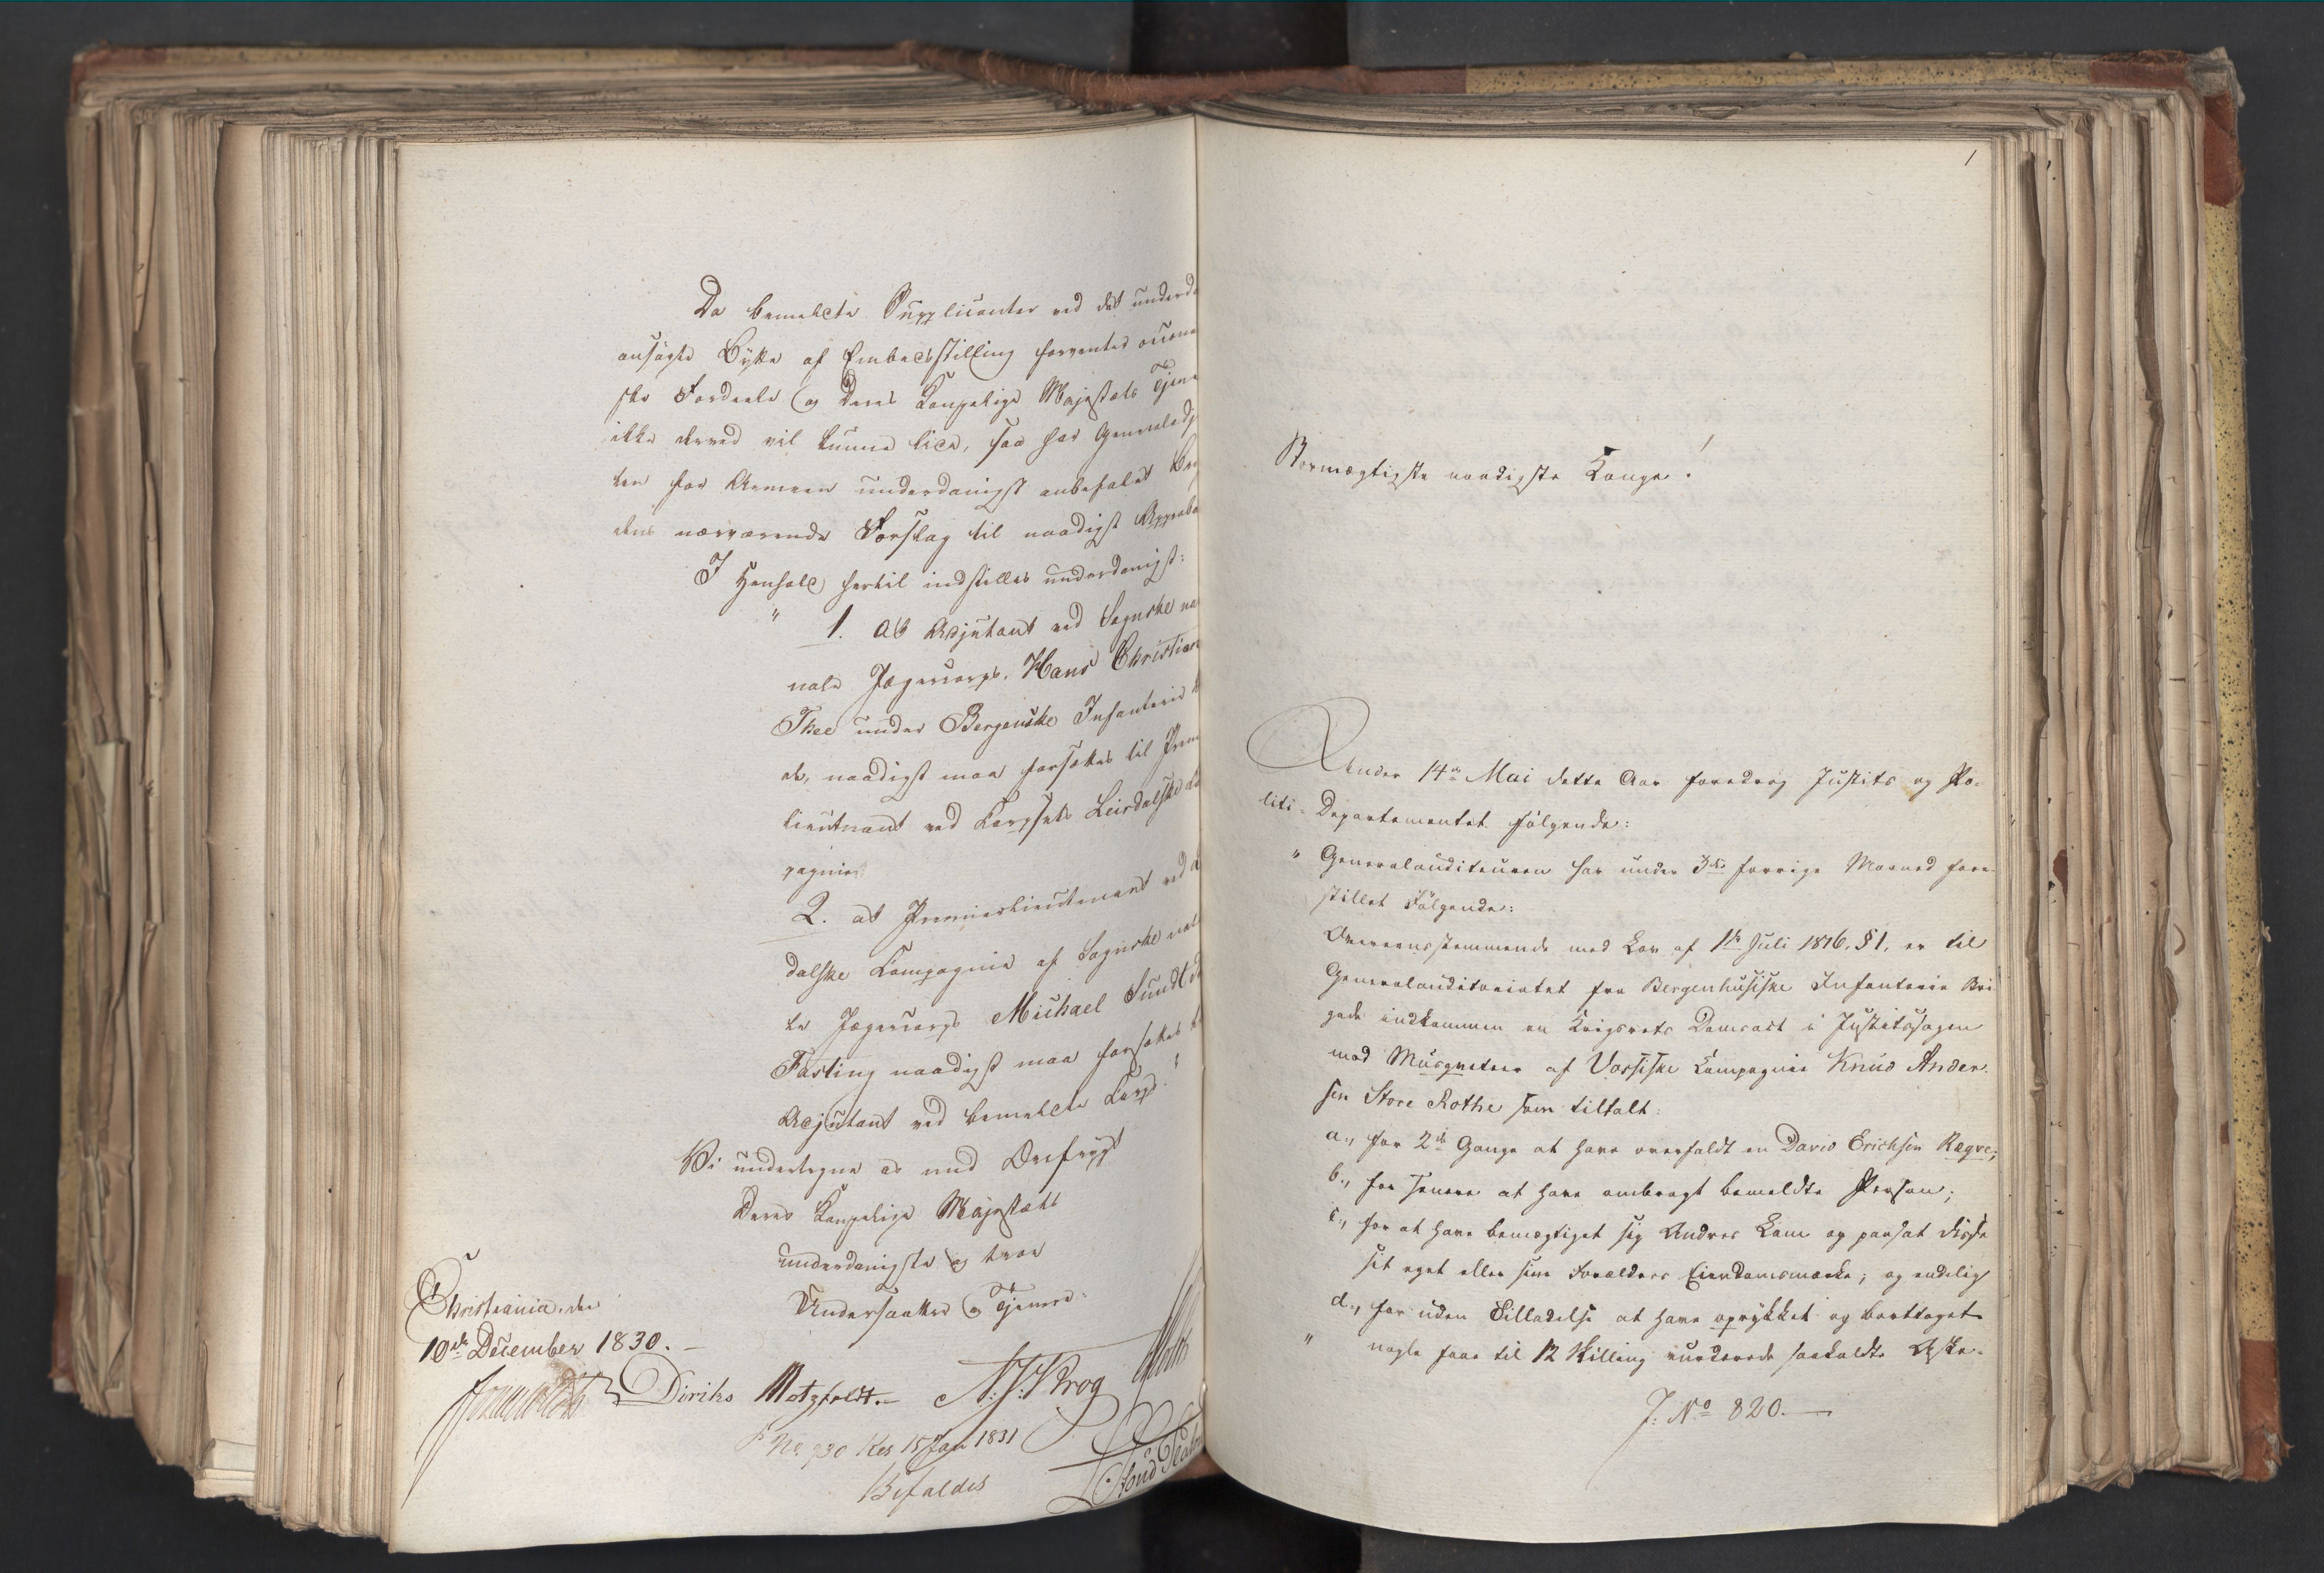 Da bemeldte Supplicanter ved det underd
ansøgte Bytte af Embedsstilling forventes oecono
ske Fordeele og Deres Kongelige Majestæts Tjene
ikke derved vil kunne lide, saa har Generaladj
ten for Armeen underdanigst anbefalet Bri
dens nærværende Forslag til naadigst Approba
I Henhold hertil indstilles underdanigst:
" 1. At Adjutant ved Sognske na
nale Jægercorps, Hans Christian
Thee under Bergenske Infanterie
de, naadigst maa forsættes til Prem
lieutnant ved Corpsets Leirdalske Co
pagnie
2. at Premierlieutenant ved
dalske Compagnie af Sognske nati
le Jægercorps Michael Sundt
Fasting naadigst maa forsættes
Adjutant ved bemeldte Corps."
Vi undertegne os med Ærefrygt
Deres Kongelige Majestæts
underdanigste og troe
Undersaatter og Tjenere.
Christiania, den
10de December 1830. –
Diriks Motzfeldt. – N: J: Krog
No. 730 Res 15 Jan 1831
Bifaldes
1
Stormægtigste naadigste Konge!
Under 14de Mai dette Aar foredrog Justits og Po-
liti-Departementet følgende:
" Generalauditeuren har under 3die forrige Maaned fore-
stillet Følgende:
Overeensstemmende med Lov af 1ste Juli 1816, § 1, er til
Generalauditoriatet fra Bergenhusiske Infanterie Bri
gade indkommen en Krigsrets Domsact i Justitssagen
mod Musqueteer af Vossiske Compagnie Knud Ander-
sen Store Rothe som tiltalt:
a., for 2de Gange at have overfaldt en David Erichsen Rægve;
b., for senere at have ombragt bemeldte Person;
c., for at have bemægtiget sig Andres Lam og paasat disse
sit eget eller sine Forældres Eiendomsmærke; og endelig
d., for uden Tilladelse at have oprykket og borttaget
" nogle faae til 12 Skilling vurderede saakaldte Aske-
J: No 820. –